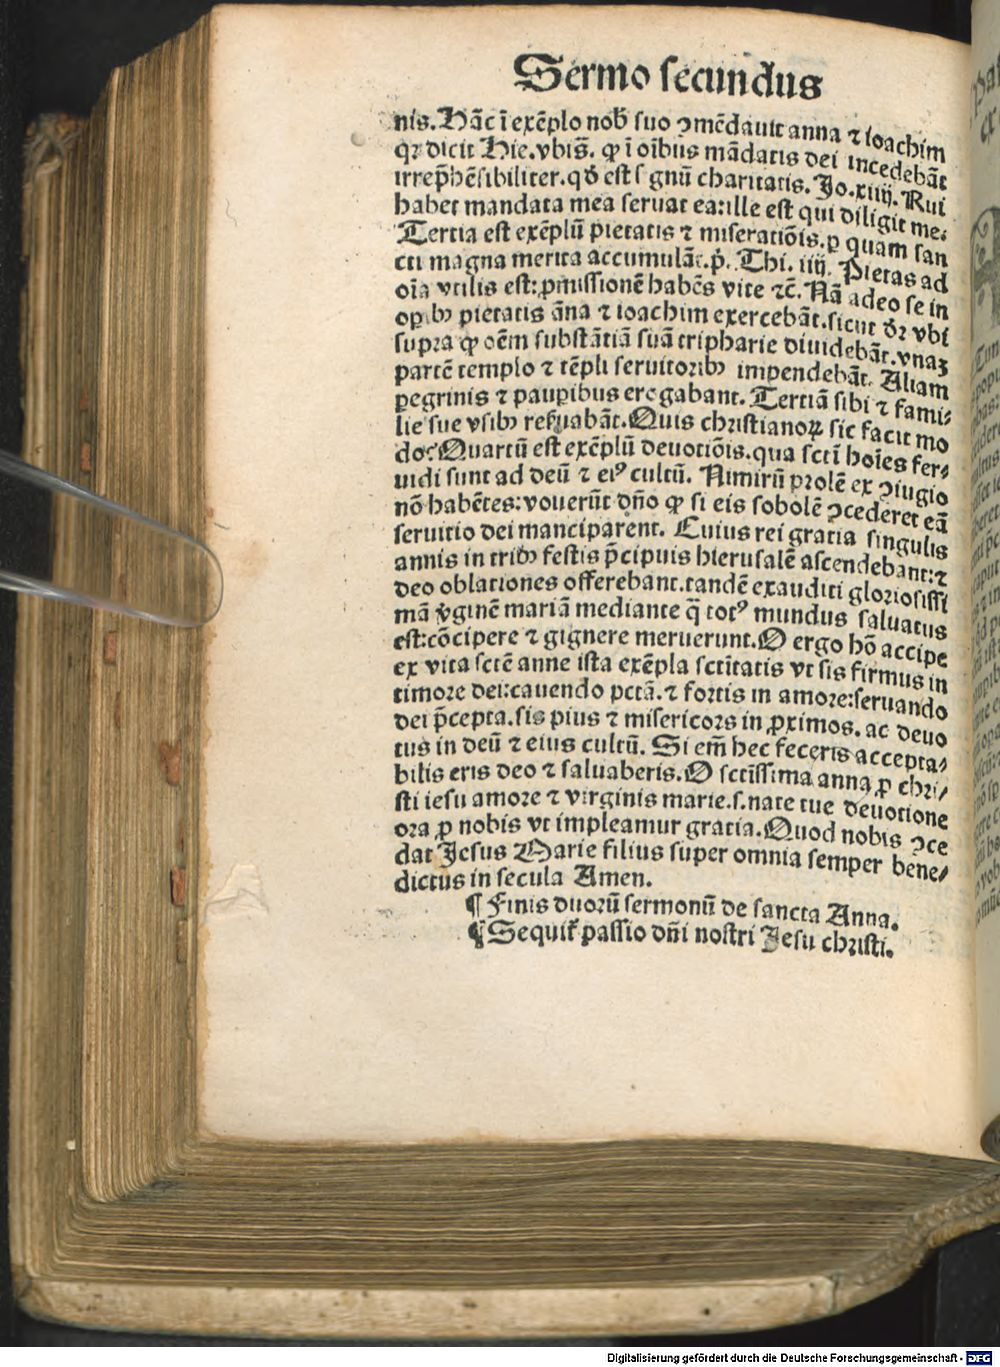 Sermo secundus
nis. Hāc ī exēplo nob̄ suo ↄmēdauit anna ⁊ ioachim
qꝛ dicit Hie. vbi s̄. ꝙ ī oībus mādatis dei incedebāt
irrep̄hēsibiliter. qđ est signū charitatis. Jo. xiiij. Qui
habet mandata mea seruat ea: ille est qui diligit me.
Tertia est exēplū pietatis ⁊ miseratiōis. ꝑ quam san
cti magna merita accumulāt. p̄. Thi. iiij. Pietas ad
oīa vtilis est: ꝓmissionē habēs vite ⁊c̄. Nā adeo se in
oꝑibꝫ pietatis āna ⁊ ioachim exercebāt. sicut đr vbi
supra ꝙ oēm substātiā suā tripharie diuidebāt. vnaꝫ
partē templo ⁊ tēpli seruitoribꝫ impendebāt. Aliam
ꝑegrinis ⁊ pauꝑibus erogabant. Tertiā sibi ⁊ fami⸗
lie sue vsibꝫ reẜuabāt. Quis christianoꝝ sic facit mo
do? Quartū est exēplū deuotiōis. qua sctī hoīes fer⸗
uidi sunt ad deū ⁊ eiꝰ cultū. Nimirū prolē ex ↄiugio
nō habētes: vouerūt dn̄o ꝙ si eis sobolē ↄcederet eā
seruitio dei manciparent. Cuius rei gratia singulis
annis in tribꝫ festis p̄cipuis hierusalē ascendebant: ⁊
deo oblationes offerebant. tandē exauditi gloriosissi
mā v̄ginē mariā mediante q̄ totꝰ mundus saluatus
est: cōcipere ⁊ gignere meruerunt. O ergo hō accipe
ex vita sctē anne ista exēpla sctītatis vt sis firmus in
timore dei: cauendo pctā. ⁊ fortis in amore: seruando
dei p̄cepta. sis pius ⁊ misericors in ꝓximos. ac deuo
tus in deū ⁊ eius cultū. Si em̄ hec feceris accepta⸗
bilis eris deo ⁊ saluaberis. O sctīssima anna ꝑ chri⸗
sti iesu amore ⁊ virginis marie. s. nate tue deuotione
ora ꝓ nobis vt impleamur gratia. Quod nobis ↄce
dat Jesus Marie filius super omnia semper bene⸗
dictus in secula Amen.
¶ Finis duorū sermonū de sancta Anna.
¶ Sequit᷑ passio dn̄i nostri Jesu christi.
Digitalisierung gefördert durch die Deutsche Forschungsgemeinschaft - DFG